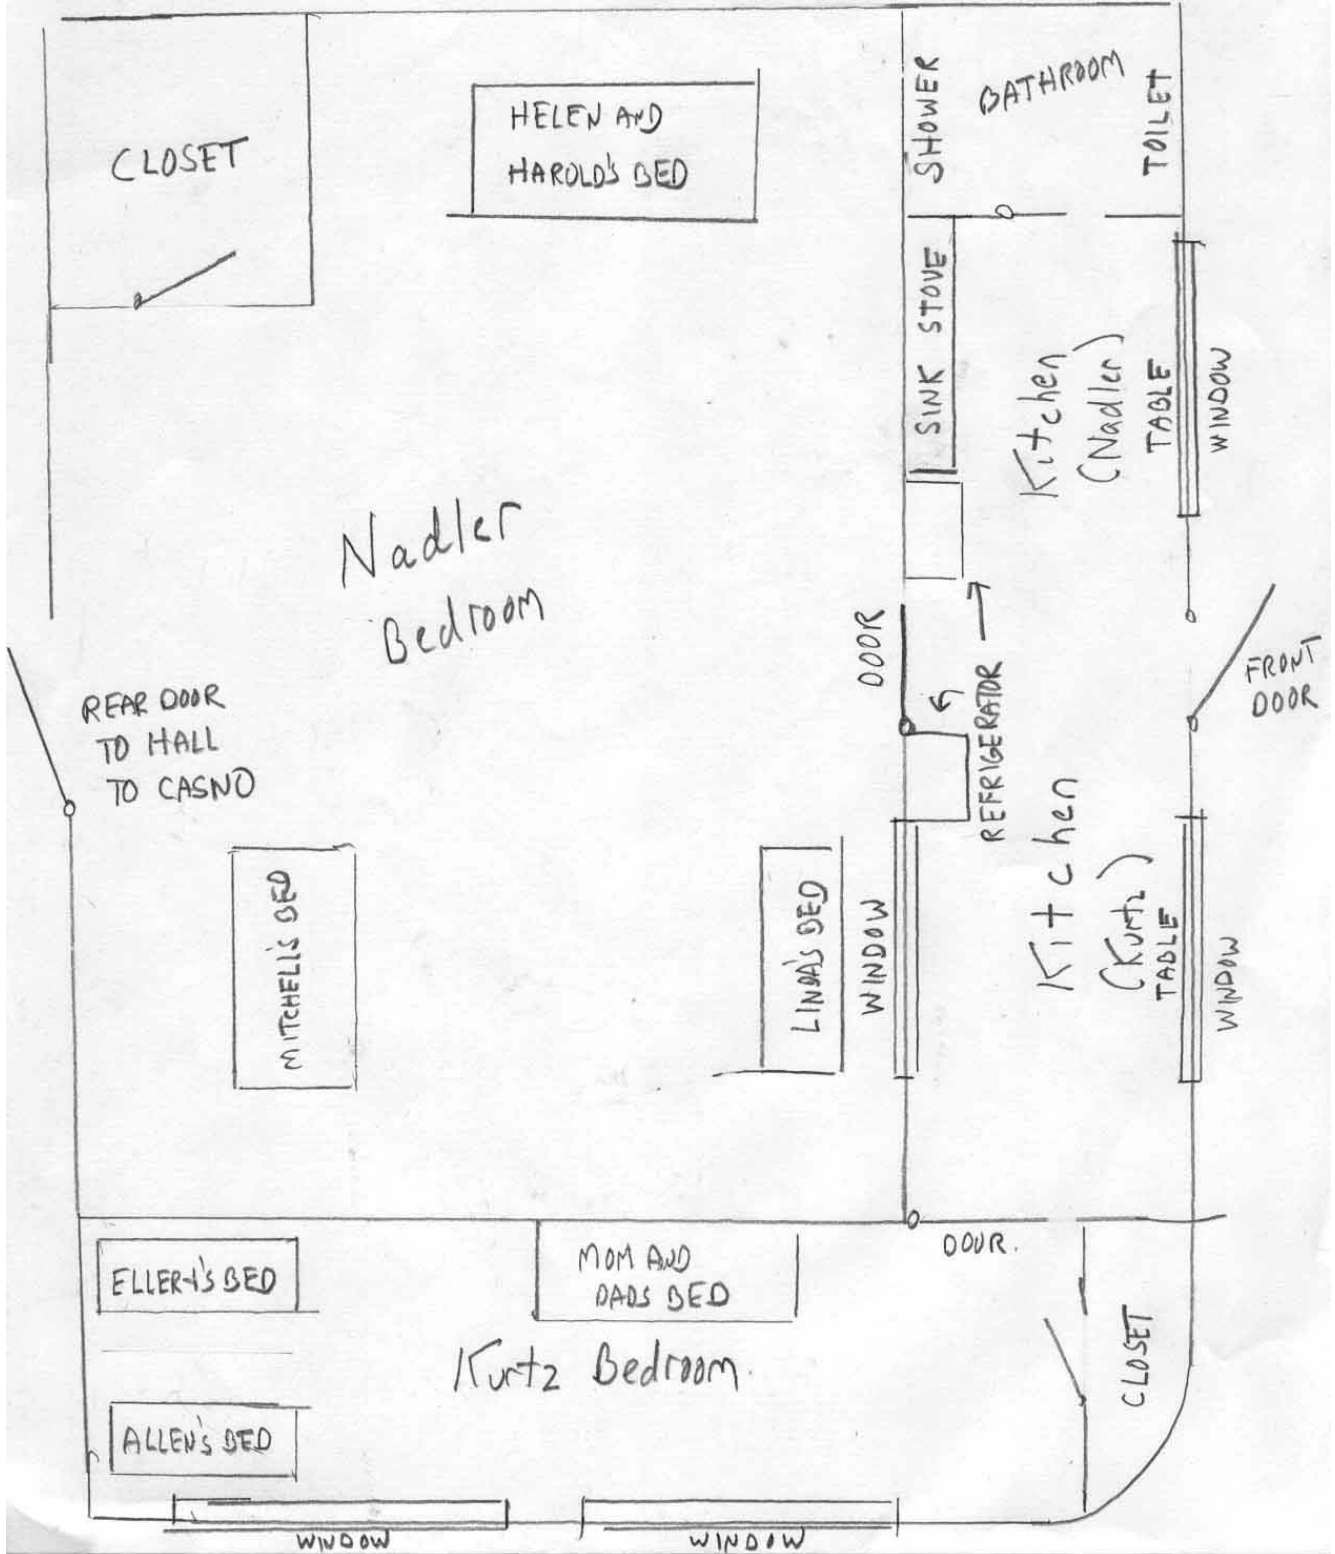 SHOWER
BATHROOM
TOILET
HELEN AND
HAROLD'S BED
CLOSET
SINK STOVE
Kitchen
(Nadler)
TABLE
WINDOW
Nadler
Bedroom
DOOR
REFRIGERATOR
FRONT
DOOR
REAR DOOR
TO HALL
TO CASNO
MITCHELL'S BED
LINDA'S BED
WINDOW
Kitchen
(Kurtz)
TABLE
WINDOW
DOOR.
ELLERY'S BED
MOM AND
DADS BED
Kurtz Bedroom.
CLOSET
ALLEN'S BED
WINDOW
WINDOW